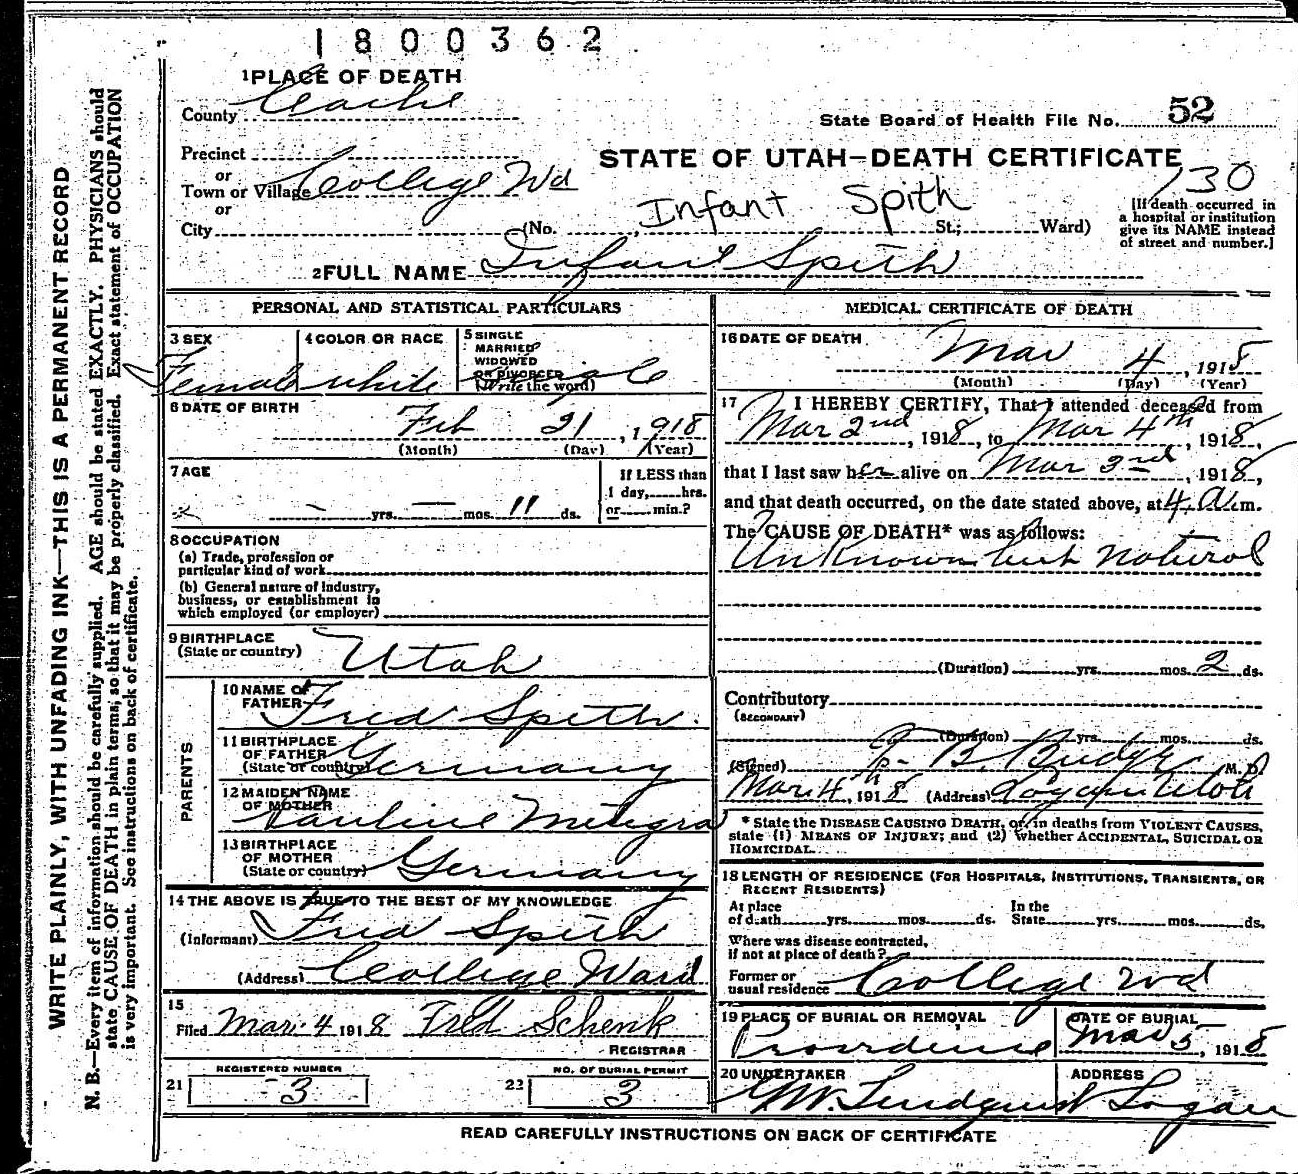 1800362
1 PLACE OF DEATH
County Cache
State Board of Health File No. 52
Precinct
or
Town or Village College Wd
or
City (No. St.; Ward)
STATE OF UTAH—DEATH CERTIFICATE
130
Infant Spith
[If death occurred in
a hospital or institution
give its NAME instead
of street and number.]
2 FULL NAME Infant Spith
PERSONAL AND STATISTICAL PARTICULARS
3 SEX
Female
4 COLOR OR RACE
white
5 SINGLE
MARRIED
WIDOWED
OR DIVORCED
(Write the word)
single
6 DATE OF BIRTH
Feb 21, 1918
(Month) (Day) (Year)
7 AGE
— yrs. — mos. 11 ds.
If LESS than
1 day, hrs.
or min.?
8 OCCUPATION
(a) Trade, profession or
particular kind of work
(b) General nature of industry,
business, or establishment in
which employed (or employer)
9 BIRTHPLACE
(State or country) Utah
PARENTS
10 NAME OF
FATHER Fred Speth.
11 BIRTHPLACE
OF FATHER
(State or country) Germany
12 MAIDEN NAME
OF MOTHER Pauline
13 BIRTHPLACE
OF MOTHER
(State or country) Germany
14 THE ABOVE IS TRUE TO THE BEST OF MY KNOWLEDGE
(Informant) Fred Spith
(Address) College Ward
15
Filed Mar. 4 1918 Fred Schenk
REGISTRAR
21 REGISTERED NUMBER
3
22 NO. OF BURIAL PERMIT
3
MEDICAL CERTIFICATE OF DEATH
16 DATE OF DEATH
Mar 4, 1918
(Month) (Day) (Year)
17 I HEREBY CERTIFY, That I attended deceased from
Mar 2nd, 1918, to Mar 4th, 1918,
that I last saw her alive on Mar 3rd, 1918,
and that death occurred, on the date stated above, at 4 A.m.
The CAUSE OF DEATH* was as follows:
Unknown but natural
(Duration) yrs. mos. 2 ds.
Contributory
(SECONDARY)
(Duration) yrs. mos. ds.
(Signed) B. Budge M. D.
Mar. 4th, 1918 (Address) Logan Utah
* State the DISEASE CAUSING DEATH, or, in deaths from VIOLENT CAUSES,
state (1) MEANS OF INJURY; and (2) whether ACCIDENTAL, SUICIDAL OR
HOMICIDAL.
18 LENGTH OF RESIDENCE (FOR HOSPITALS, INSTITUTIONS, TRANSIENTS, OR
RECENT RESIDENTS)
At place
of death yrs. mos. ds.
In the
State yrs. mos. ds.
Where was disease contracted,
if not at place of death?
Former or
usual residence College Wd
19 PLACE OF BURIAL OR REMOVAL
Providence
DATE OF BURIAL
Mar 5, 1918
20 UNDERTAKER
Lindquist
ADDRESS
Logan
READ CAREFULLY INSTRUCTIONS ON BACK OF CERTIFICATE
WRITE PLAINLY, WITH UNFADING INK—THIS IS A PERMANENT RECORD
N. B.—Every item of information should be carefully supplied. AGE should be stated EXACTLY. PHYSICIANS should
state CAUSE OF DEATH in plain terms, so that it may be properly classified. Exact statement of OCCUPATION
is very important. See instructions on back of certificate.